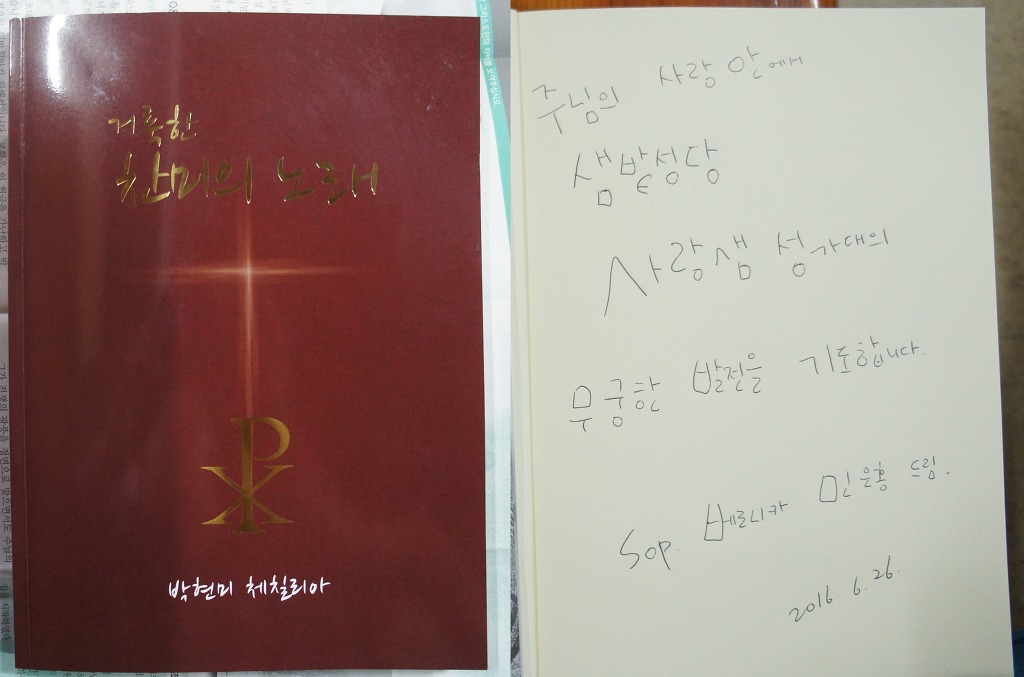 거룩한
찬미의 노래
박현미 체칠리아
주님의 사랑 안에서
샘밭성당
사랑샘 성가대의
무궁한 발전을 기도합니다.
Sop. 베로니카 민은홍 드림.
2016. 6. 26.